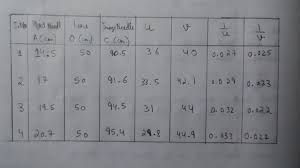 S.No Object Needle A (cm) Lens O (cm) Image Needle C (cm) u v 1/u 1/v
1 14.5 50 90.5 36 40 0.027 0.025
2 17 50 91.6 33.5 42.1 0.029 0.023
3 19.5 50 94.5 31 44 0.032 0.022
4 20.7 50 95.4 29.8 44.9 0.033 0.022